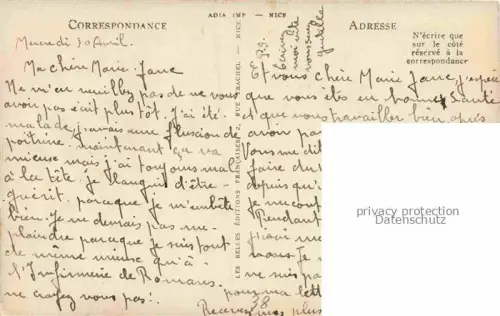 CORRESPONDANCE
ADIA IMP - NICE
ADRESSE
N'écrire que
sur le côté
réservé à la
correspondance
Mercredi 30 Avril.
Ma chère Marie-Jane
Ne m'en veuillez pas de ne vous
avoir pas écrit plus tôt. J'ai été
malade j'avais une fluxion de
poitrine. maintenant ça va
mieux mais j'ai toujours mal
à la tête. je languis d'être
guérit. parceque je m'embête
bien. Je ne devrais pas me
plaindre parceque je suis tout
de même mieux qu'à
l'Infirmerie de Romans.
ne croyez vous pas!.
LES BELLES ÉDITIONS FRANÇAISES, 2, RUE RACHEL - NICE
P.S.
Ecrivez
moi vite
vous serez
gentille
Et vous chère Marie Jane, j'espère
que vous êtes en bonne santé
et que vous travaillez bien, après
avoir pas
Vous me dit
faire du
depuis qu
je me cont
Pendant
vous. Je
ne suis pa
pour ma lett
38
Recevez plus
privacy protection
Datenschutz